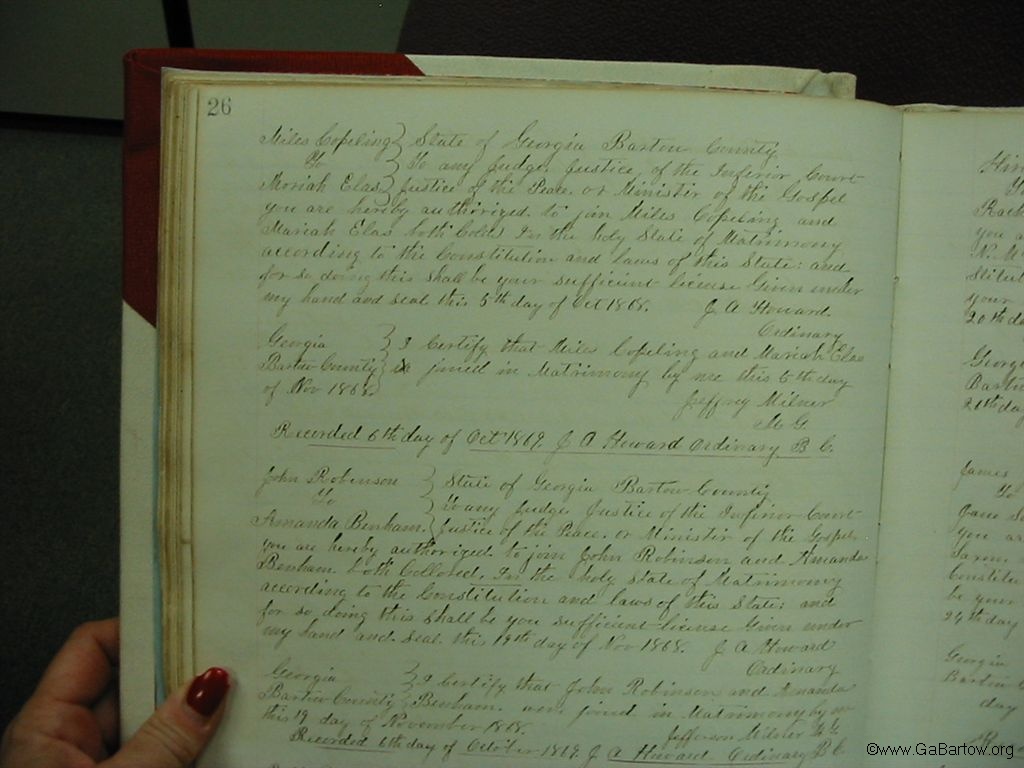 26
Miles Copeling } State of Georgia Bartow County
To } To any Judge, Justice, of the Inferior Court
Moriah Elas } Justice of the Peace, or Minister of the Gospel
you are hereby authorized to join Miles Copeling and
Mariah Elas both Cold In the holy State of Matrimony
according to the Constitution and laws of this State: and
for so doing this shall be your sufficient license Given under
my hand and seal this 5th day of Oct 1868. J A Howard
Ordinary
Georgia } I Certify that Miles Copeling and Mariah Elas
Bartow County } joined in Matrimony by me this 5th day
of Nov 1868. Jeffrey Milner
M G
Recorded 6th day of Oct 1869, J A Howard Ordinary B C.
John Robinson } State of Georgia Bartow County
To } To any Judge, Justice of the Inferior Court
Amanda Benham. } Justice of the Peace, or Minister of the Gospel,
you are hereby authorized, to join John Robinson and Amanda
Benham both Collored, In the holy State of Matrimony
according to the Constitution and laws of this State: and
for so doing this shall be you sufficient license Given under
my hand and seal this 19th day of Nov 1868. J A Howard
Ordinary
Georgia } I Certify that John Robinson and Amanda
Bartow County } Benham. were joined in Matrimony by
this 19 day of November 1868. Jefferson Milner
Recorded 6th day of October 1869 J A Howard Ordinary B C.
you a
N. M
your
20th da
Georgi
Bartow
21th day
James
To
you ar
Constitu
be your
24th day
Georgia
Bartow C
day
©www.GaBartow.org